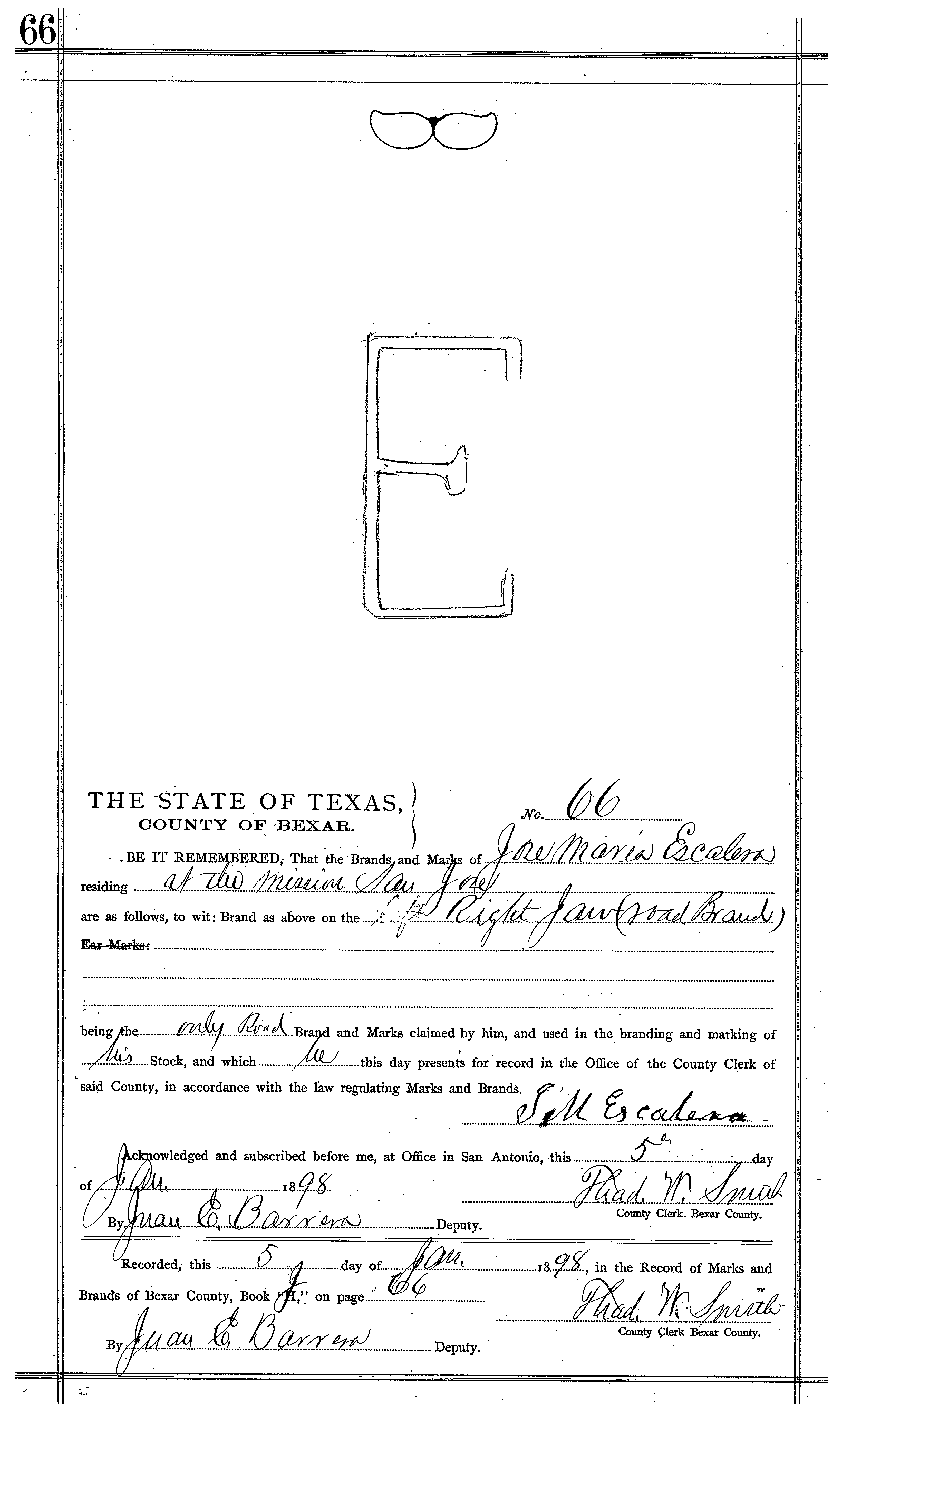 66
E
THE STATE OF TEXAS,
COUNTY OF BEXAR.
No. 66
BE IT REMEMBERED, That the Brands and Marks of Jose Maria Escalera
residing at the Mission San Jose
are as follows, to wit: Brand as above on the Right Jaw (road Brand)
Ear Marks:
being the only Road Brand and Marks claimed by him, and used in the branding and marking of
his Stock, and which he this day presents for record in the Office of the County Clerk of
said County, in accordance with the law regulating Marks and Brands.
J M Escalera
Acknowledged and subscribed before me, at Office in San Antonio, this 5 day
of Jan. 1898
Thad. W. Smith
County Clerk. Bexar County.
By Juan E. Barrera Deputy.
Recorded, this 5 day of Jan. 1898, in the Record of Marks and
Brands of Bexar County, Book "J," on page 66
Thad. W. Smith
County Clerk Bexar County.
By Juan E. Barrera Deputy.